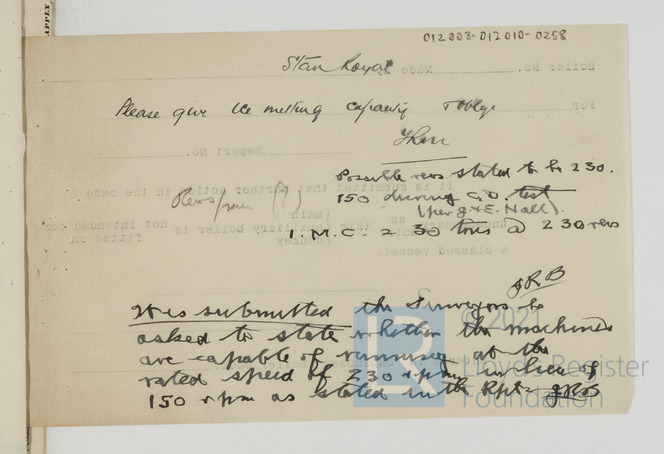 012003-012010-0258
Star Royal
Please give ice melting capacity & oblige
Possible revs stated to be 230.
150 during C.D. test
(per J & E. Hall).
Revs/min (?)
I.M.C. = 230 tons @ 230 revs
JRB
It is submitted the Surveyors be
asked to state whether the machines
are capable of running at the
rated speed of 230 rpm in lieu of
150 rpm as stated in the Rpt. JRB
© 2021
Lloyd's Register
Foundation
LR
APPLY
Boiler No. Made
For
Report No.
It is submitted that further action in the case
main
auxiliary boiler is not intended
donkey
fitted on
a classed vessel.